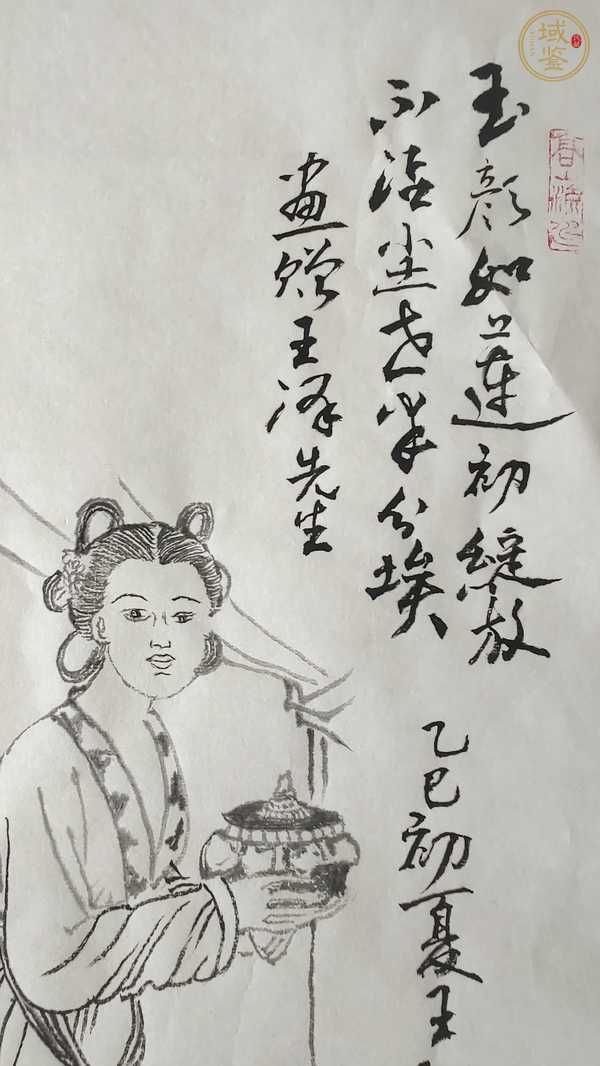 玉颜如莲初绽放
不沾尘世半分埃
画赠王泽先生
乙巳初夏王
域鉴